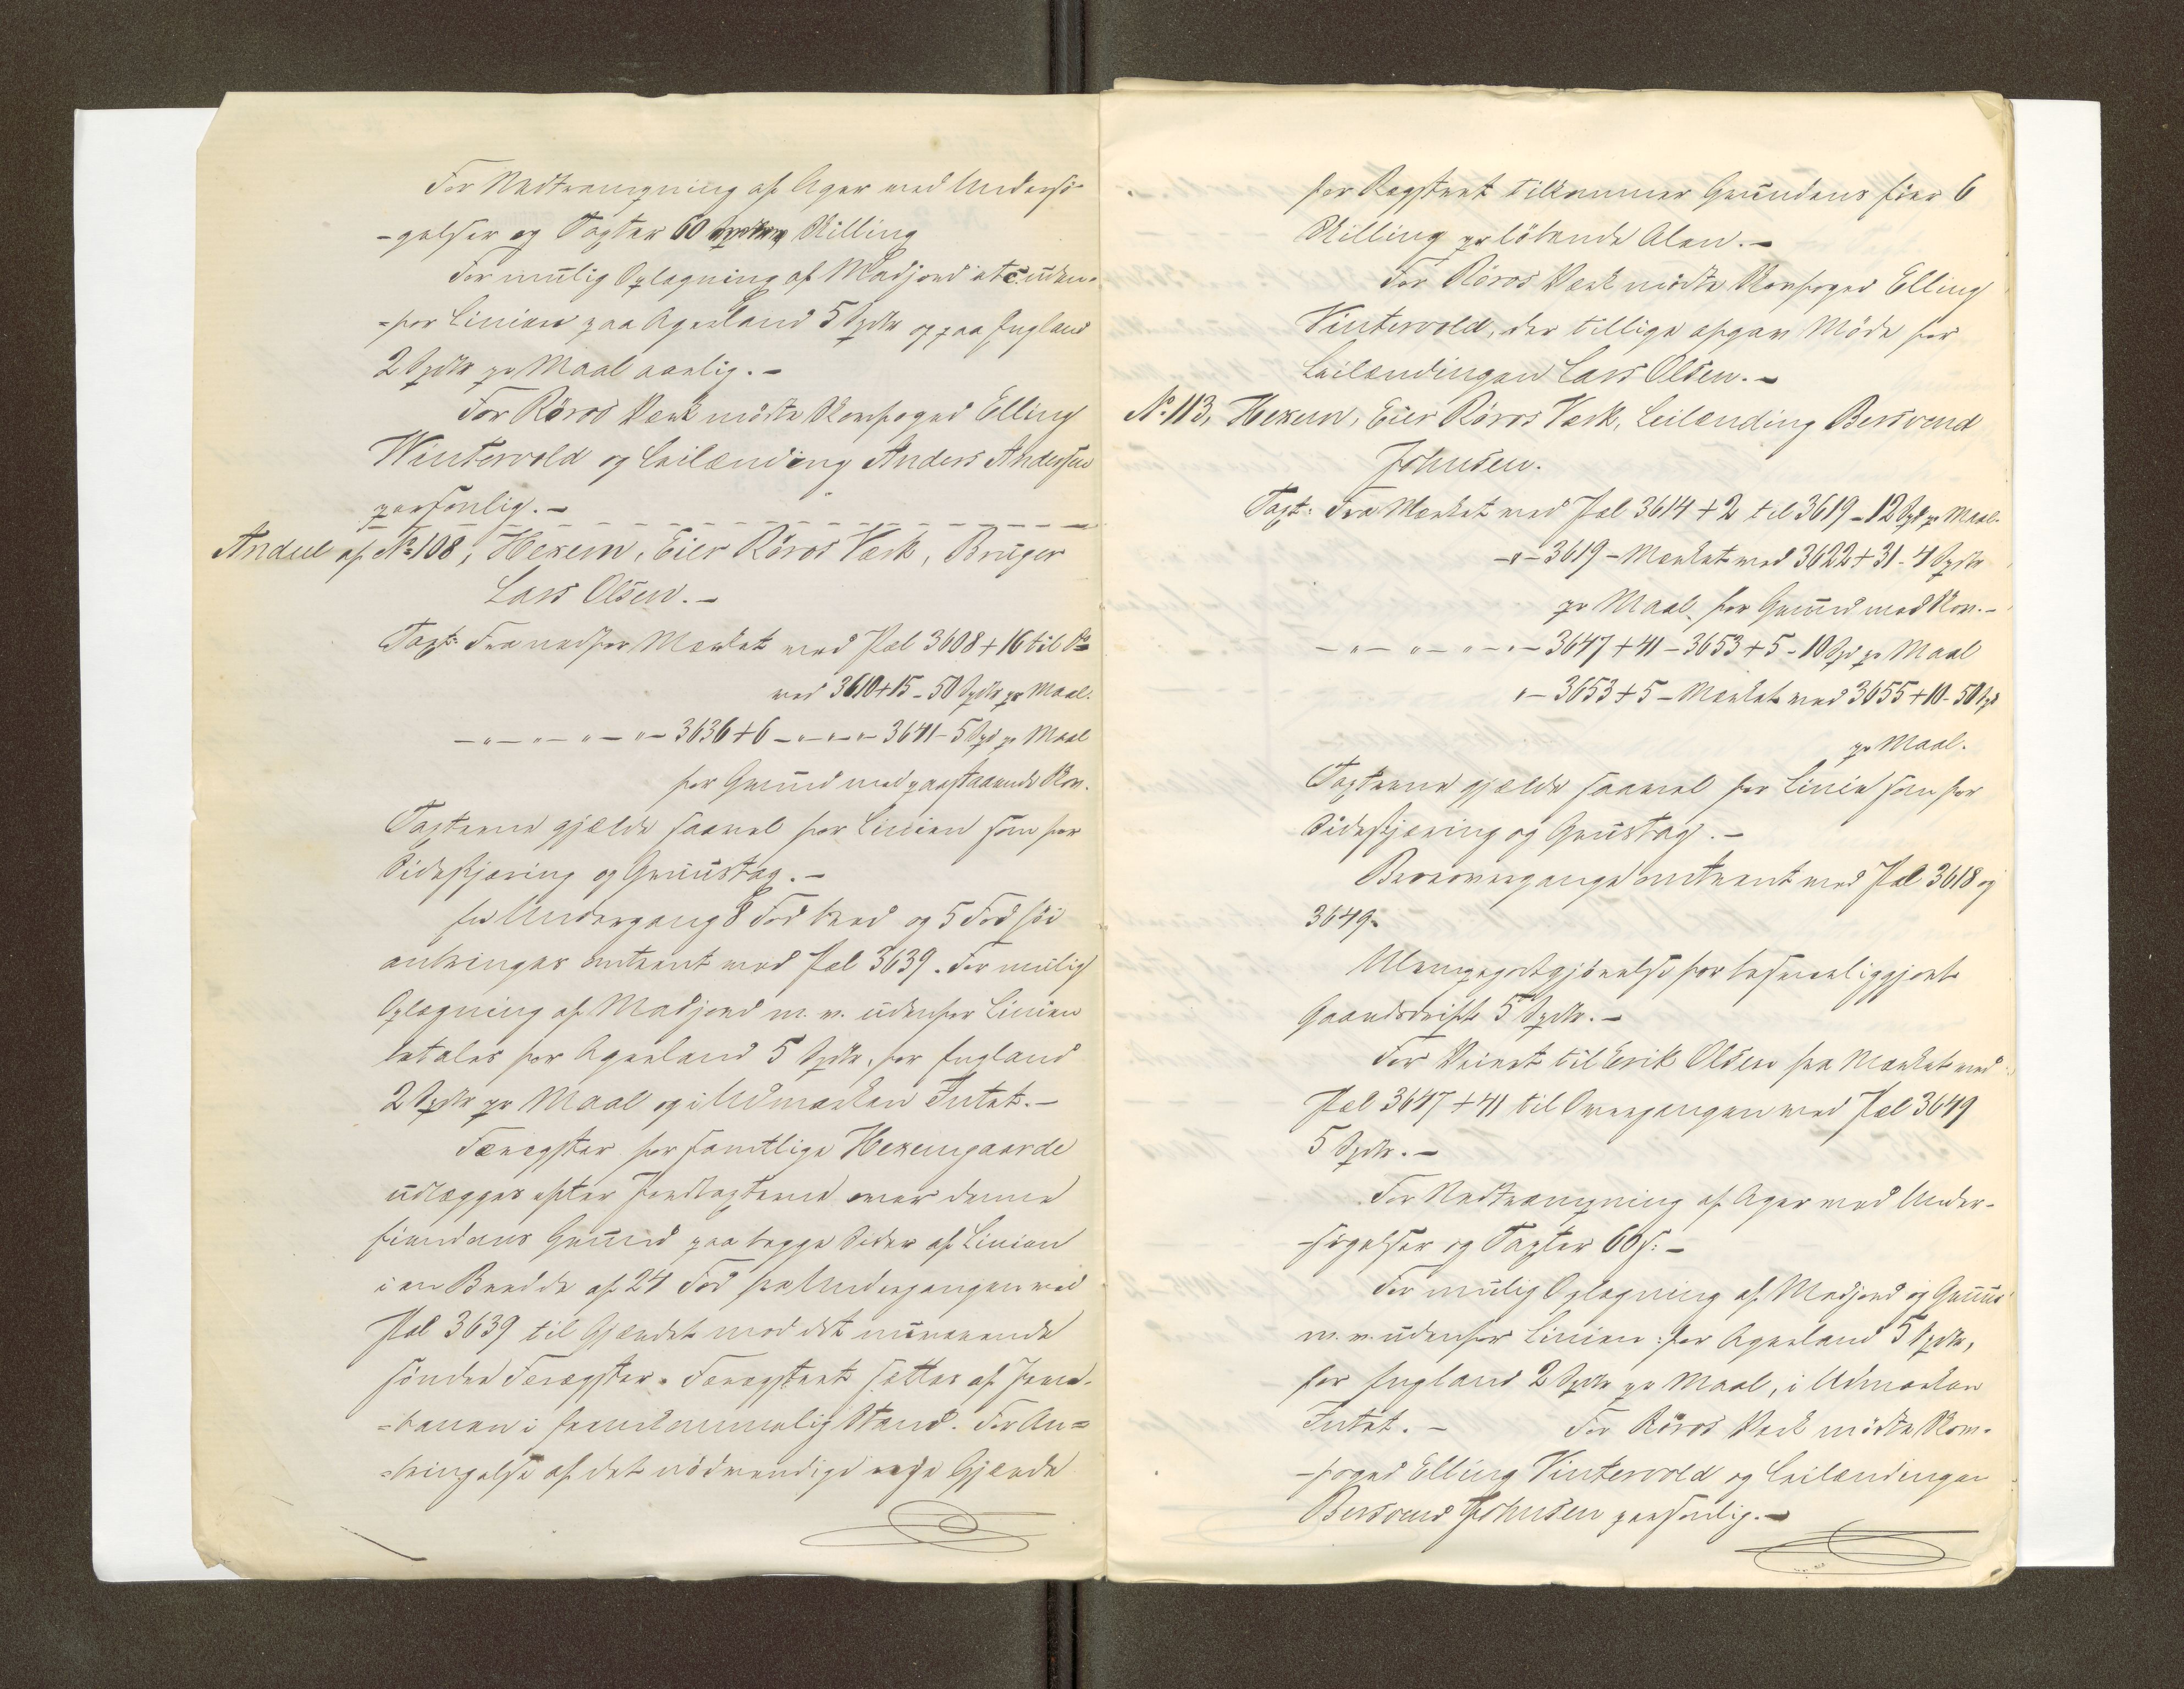 For Nedtrampning af Ager ved Undersö-
-gelser og Taxter 60 Skilling
For mulig Oplægning af Madjord etc. uden-
-for Linien paa Agerland 5 Spdlr og paa England
2 Spdlr pr Maal aarlig.-
For Röros Værk mödte Skovfoged Elling
Wintervold og Leilænding Anders Anderssen
personlig.-
Andeel af No 108, Hexem, Eier Röros Værk, Bruger
Lars Olsen.-
Taxt: Fra nedfor Mærket ved Pæl 3608 + 16 til Do
ved 3610+15 - 50 Spdlr pr Maal.
-"- -"- "- "- 3636+6 -"-"- 3641 - 5 Spd pr Maal
for Grund med paastaaende Skov.
Taxterne gjælde saavel for Linien som for
Sideskjæring og Gruustag.-
En Undergang 8 Fod bred og 5 Fod höi
anbringes omtrent ved Pæl 3639. For mulig
Oplægning af Madjord m. v. udenfor Linien
betales for Agerland 5 Spdlr, for England
2 Spdlr pr Maal og i Udmarken Intet.-
Færegster for samtlige Hexemgaarde
udlægges efter Jordtaxterne over denne
Eiendoms Grund paa begge Sider af Linien
i en Bredde af 24 Fod fra Undergangen ved
Pæl 3639 til Gjærdet mod det nuværende
söndre Færegster. Færegstret sættes af Jern-
-banen i fremkommelig Stand. For An-
-bringelse af det nödvendige nye Gjærde
for Regstret tilkommer Grundens Eier 6
Skilling pr löbende Alen.-
For Röros Værk mödte Skovfoged Elling
Vintervold, der tillige afgav Möde for
Leilændingen Lars Olsen.-
No 113, Hexem, Eier Röros Værk, Leilænding Bersvend
Johnsen.
Taxt: Fra Mærket ved Pæl 3614 + 2 til 3619 - 12 Spd pr Maal.
-"- 3619 - Mærket ved 3622 + 31 - 4 Spdlr
pr Maal for Grund med Skov.-
-"- "- "- "- 3647 + 41 - 3653 + 5 - 10 Spd pr Maal
"- 3653 + 5 - Mærket ved 3655 + 10 - 50 Spd
pr Maal.
Taxterne gjælde saavel for Linien som for
Sideskjæring og Gruustag.-
Overgange omtrent ved Pæl 3618 og
3649.
Ulempegodtgjörelse for besværliggjort
Gaardsdrift 5 Spdlr.-
For Veiret til Erik Olsen fra Mærket ved
Pæl 3647 + 41 til Overgangen ved Pæl 3649
5 Spdlr.-
For Nedtrampning af Ager ved Under-
-sögelser og Taxter 60 s:-
For mulig Oplægning af Madjord og Gruus
m. v. udenfor Linien: for Agerland 5 Spdlr,
for England 2 Spdlr pr Maal, i Udmarken
Intet.- For Röros Værk mödte Skov-
-foged Elling Vintervold og Leilændingen
Bersvend Johnsen personlig.-